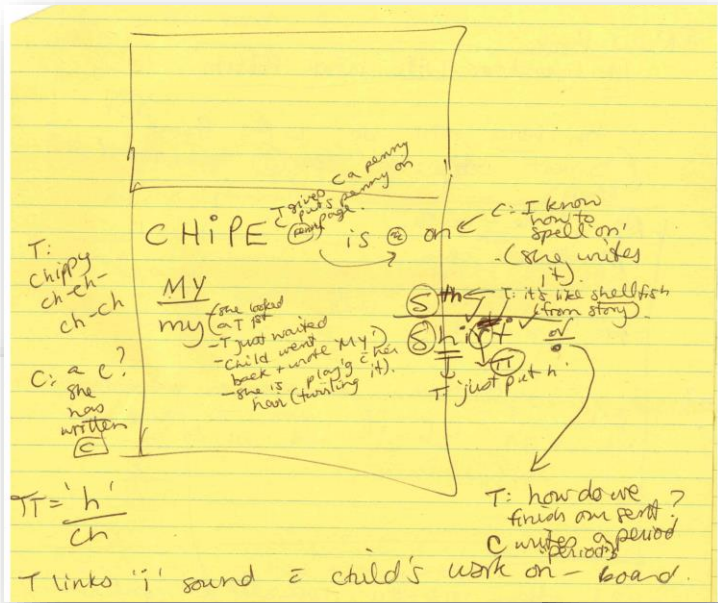 T gives C a penny
puts penny on
page.
CHiPE penny is a on
C: I know
how to
spell on,
(she writes
it).
T:
chippy
ch-ch-
ch-ch
MY
my
she looked
a T 1st
- T just waited
- child went
back + wrote 'My'
- she is play'g c her
hair (twirling it).
S th
T: it's like shellfish
(from story).
Shirt
T: just put h
C: a c?
she
has
written
c
TT = 'h'
ch
T: how do we
finish our sent?
C writes a period
periods
T links 'i' sound c child's work on - board.